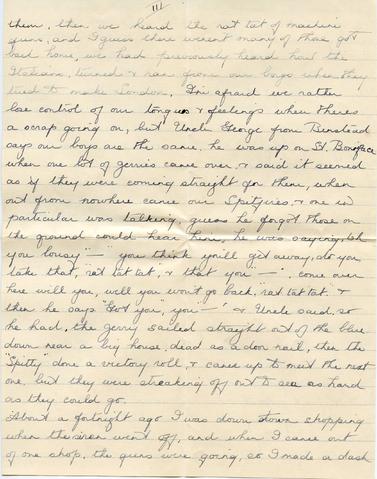 III
them, then we heard the rat tat of machine
guns, and I guess there weren't many of those got
back home, we had previously heard how the
Italians, turned & ran from our boys when they
tried to make London. I'm afraid we rather
lose control of our tongues & feelings when theres
a scrap going on, but Uncle George from Binstead
says our boys are the same. he was up on St. Boniface
when one lot of gerries came over, & said it seemed
as if they were coming straight for them, when
out from nowhere came our Spitfires, & one in
particular was talking, guess he forgot those on
the ground could hear him, he was saying, Oh
you lousy " — " you think you'll get away, do you
take that, "rat tat tat", & that you " — ", come over
here will you, well you won't go back, "rat tat tat". &
then he says "Got you", you — " & Uncle said, so
he had, the gerry sailed straight out of the blue
down near a big house, dead as a door nail, then the
"Spitty" done a victory roll, & came up to meet the next
one, but they were streaking off out to sea as hard
as they could go.
About a fortnight ago I was down town shopping
when the siren went off, and when I came out
of one shop, the guns were going, so I made a dash